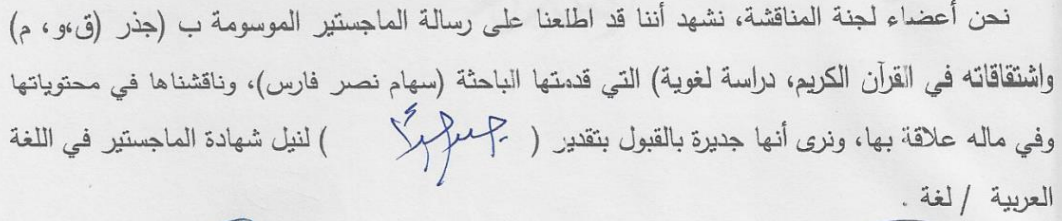 نحن أعضاء لجنة المناقشة، نشهد أننا قد اطلعنا على رسالة الماجستير الموسومة ب (جذر (ق،و، م)
واشتقاقاته في القرآن الكريم، دراسة لغوية) التي قدمتها الباحثة (سهام نصر فارس)، وناقشناها في محتوياتها
وفي ماله علاقة بها، ونرى أنها جديرة بالقبول بتقدير ( جيد جداً ) لنيل شهادة الماجستير في اللغة
العربية / لغة .